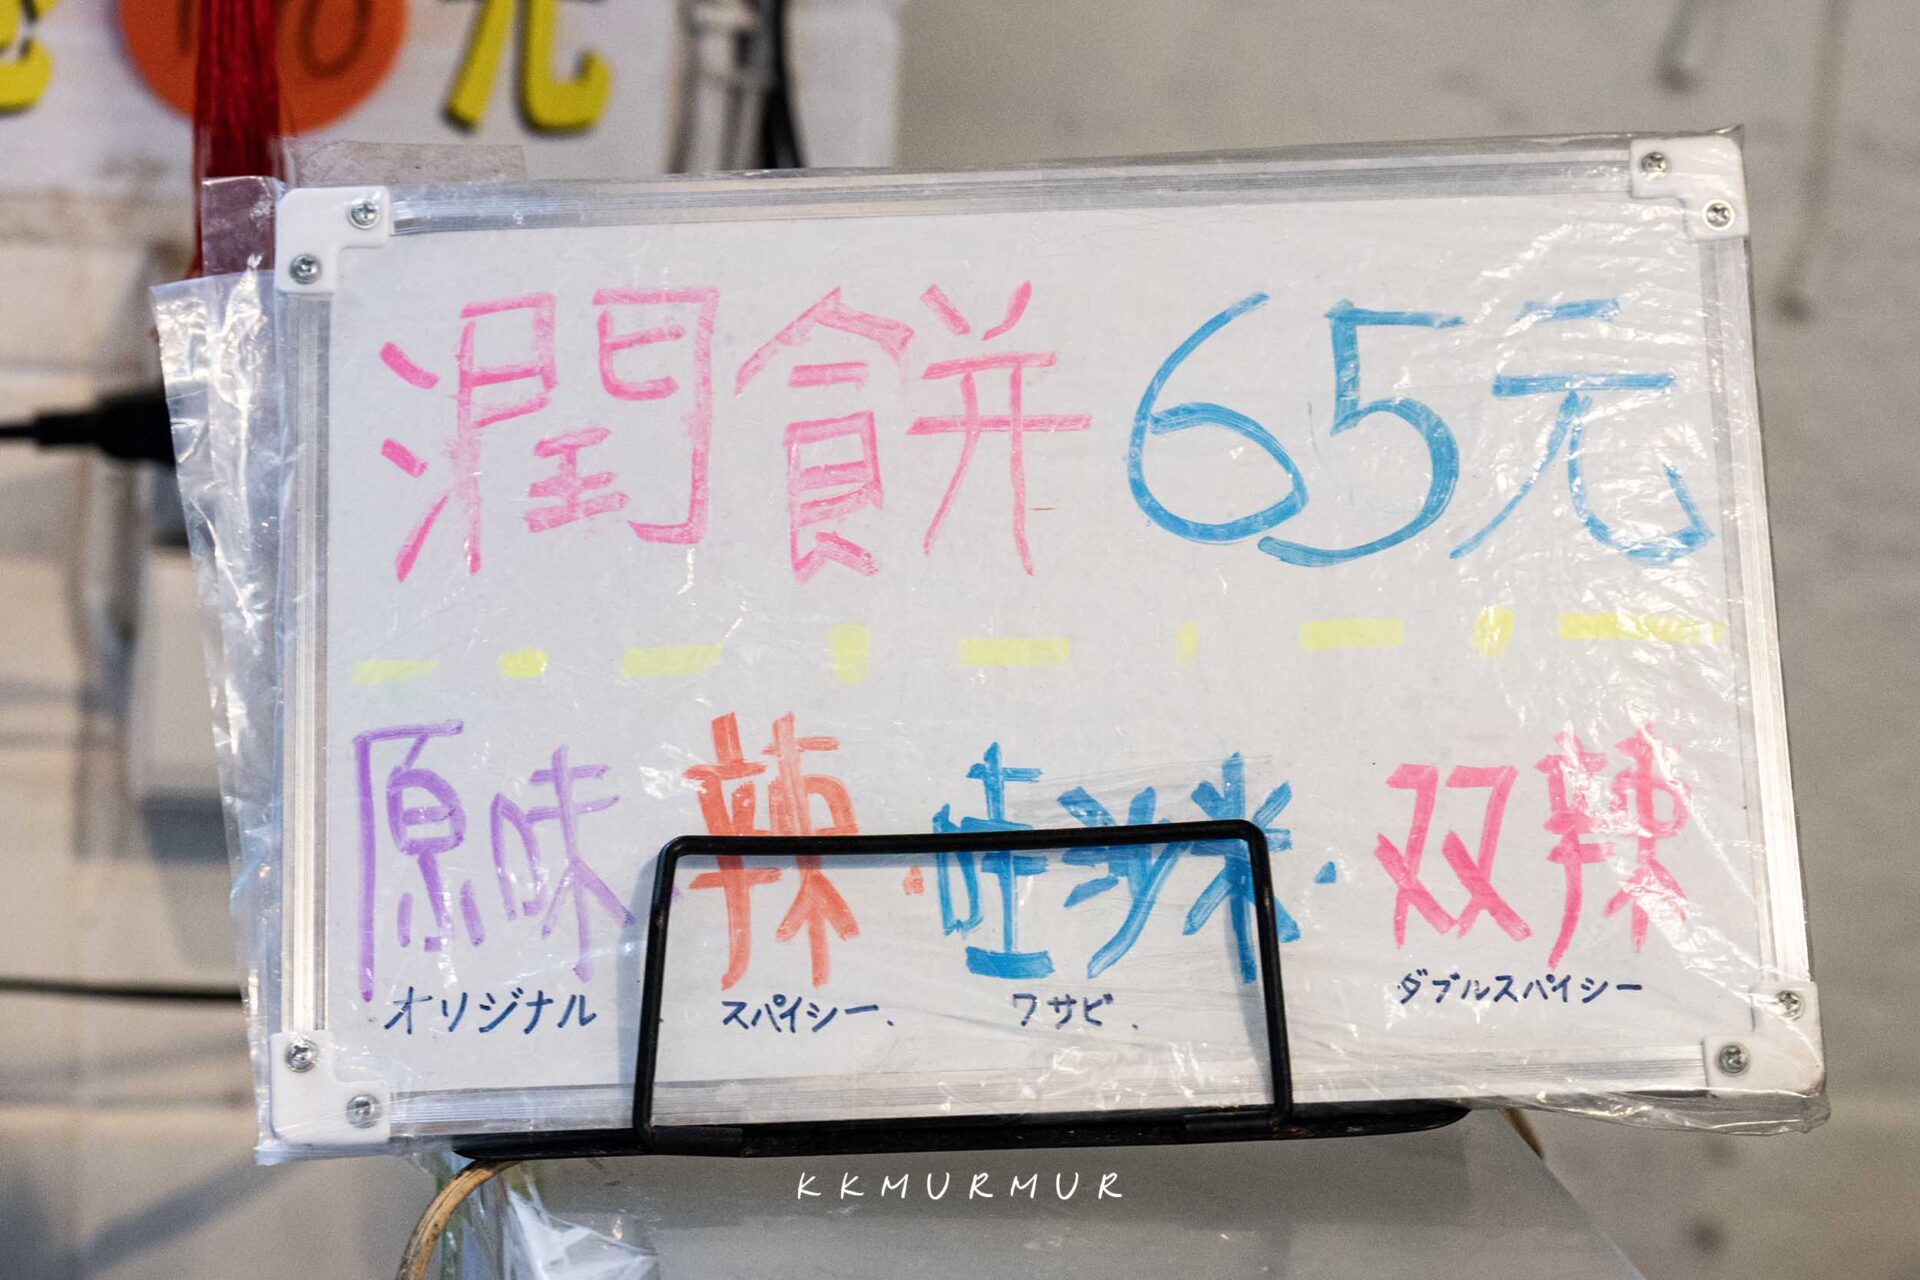 元
潤餅 65元
原味.辣.哇沙米.双辣
オリジナル . スパイシー. ワサビ. ダブルスパイシー
KKMURMUR